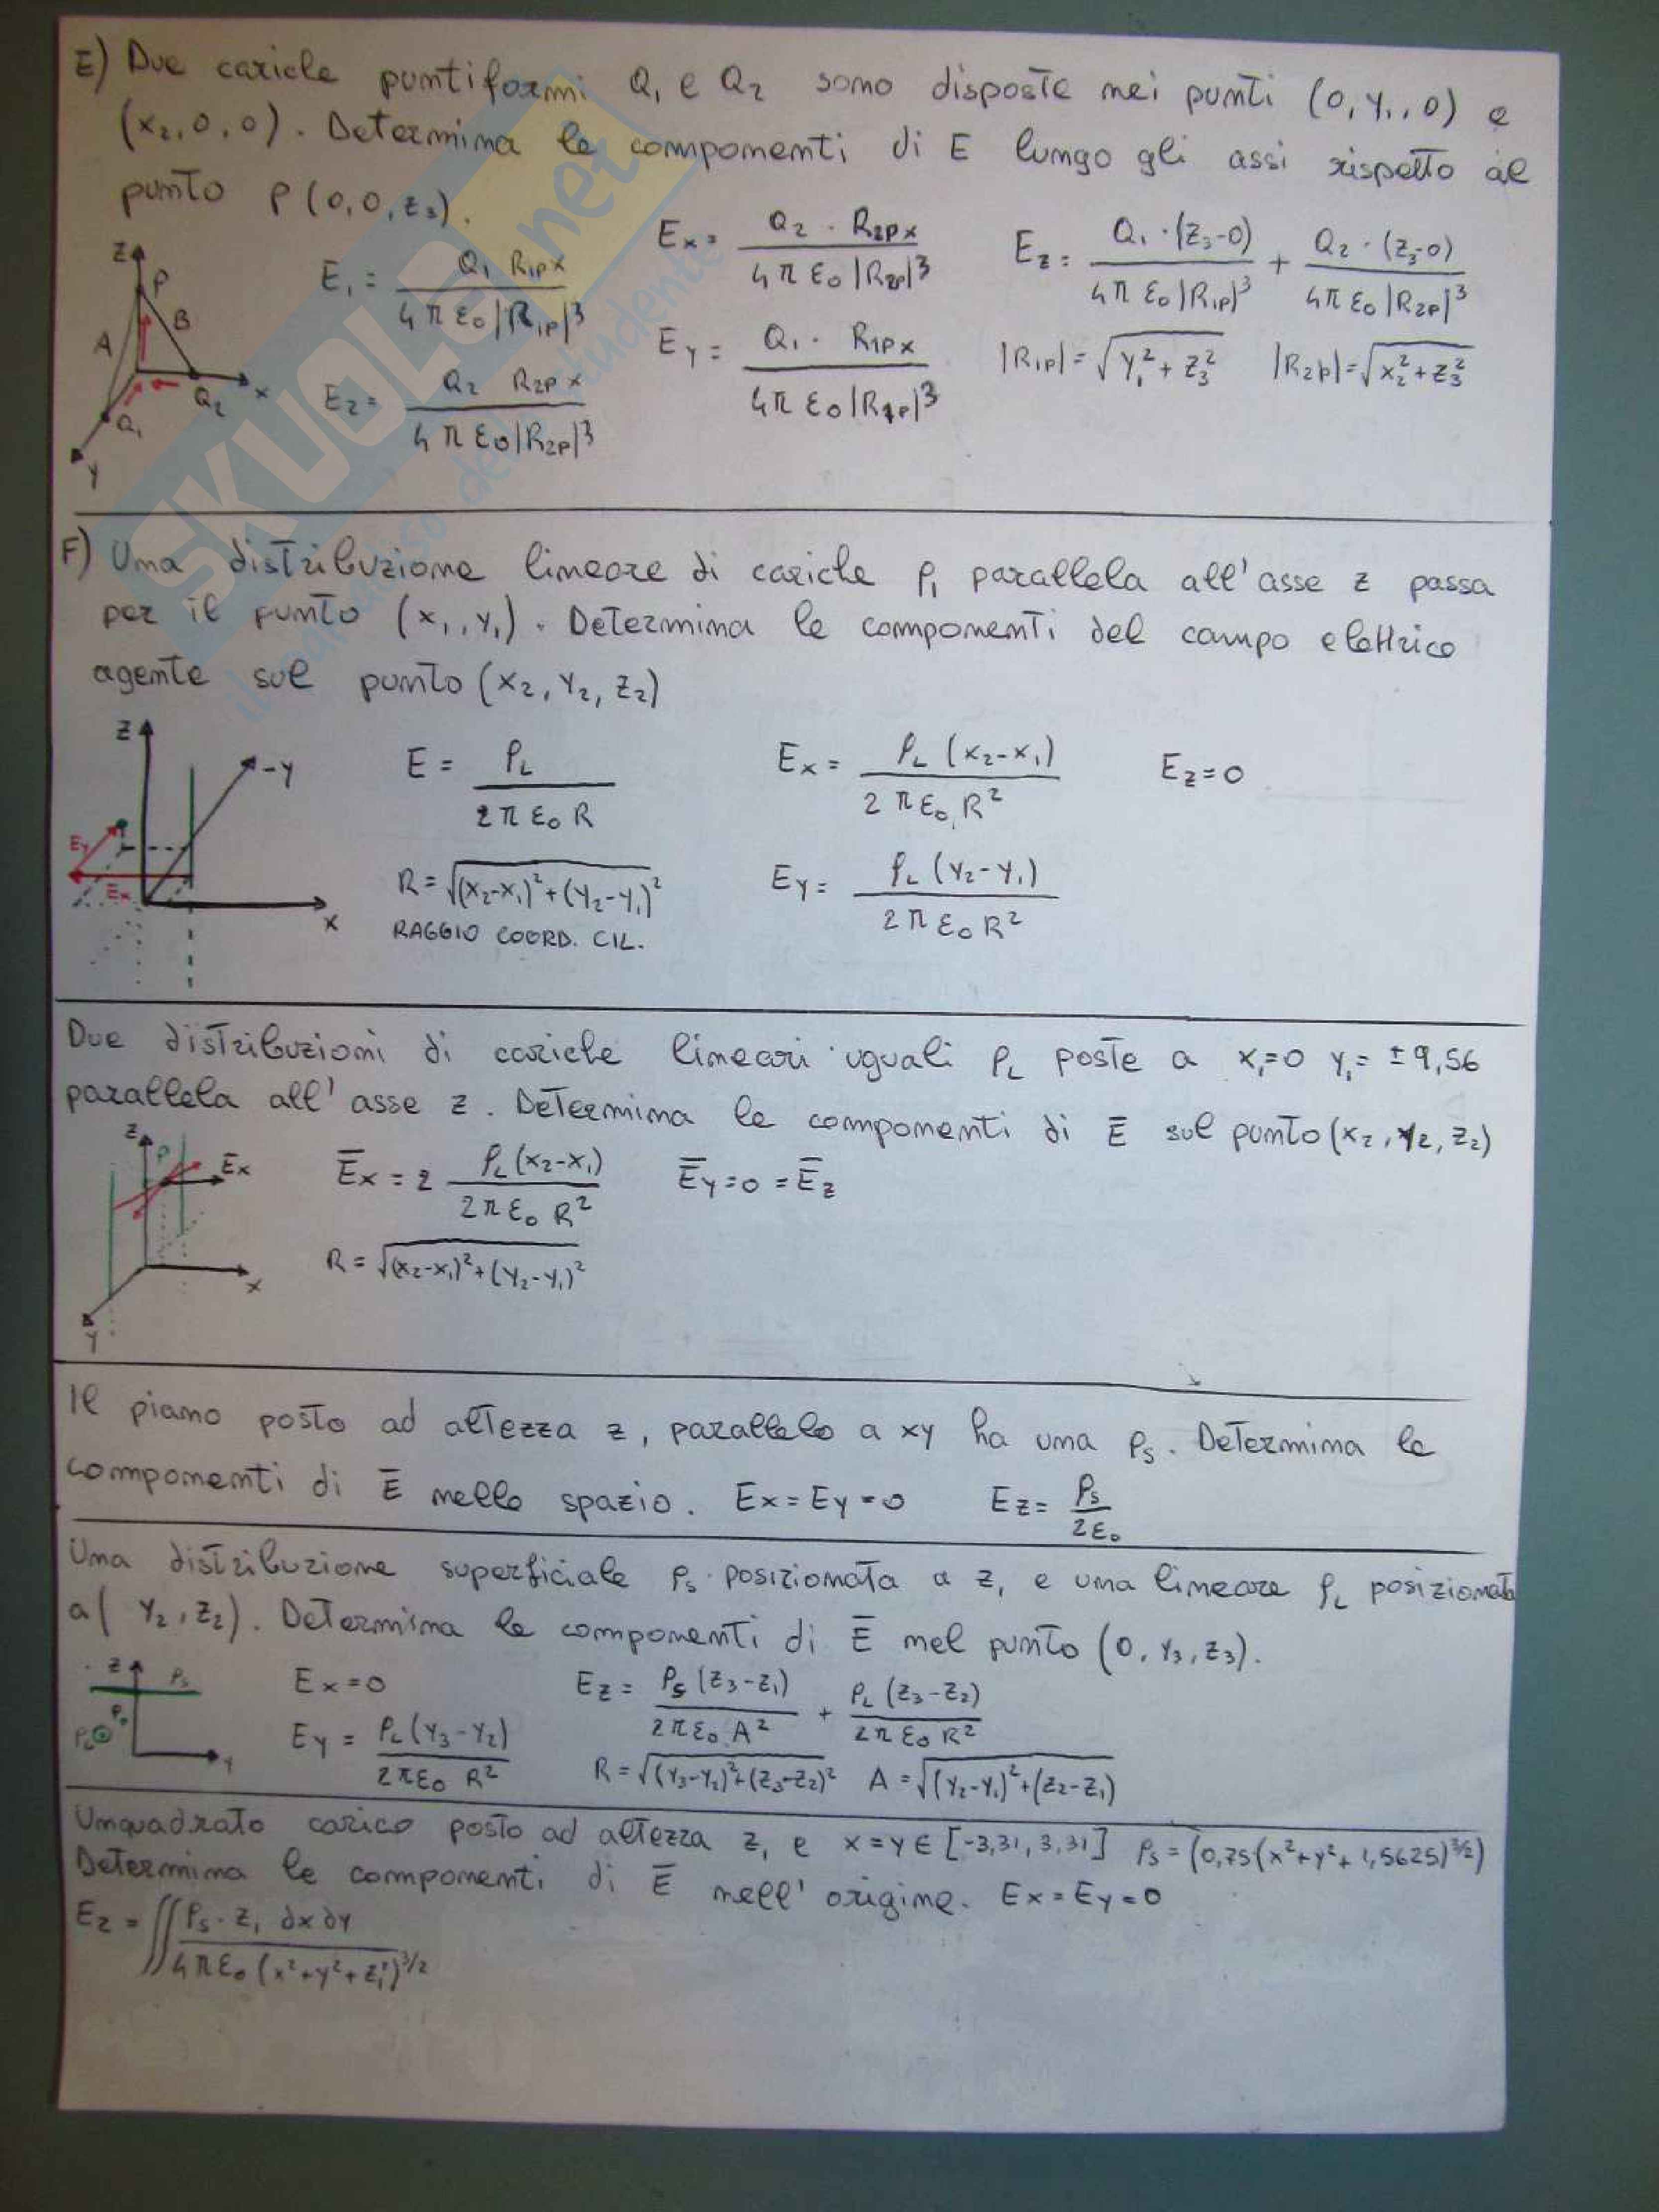 E) Due cariche puntiformi Q₁ e Q₂ sono disposte nei punti (0, Y₁, 0) e
(X₂, 0, 0). Determina le componenti di E lungo gli assi rispetto al
punto P(0, 0, Z₃).
Z P A B Q₁ Q₂ X Y
E₁ = Q₁ R₁ₚx / 4πε₀|R₁ₚ|³
E₂ = Q₂ R₂ₚx / 4πε₀|R₂ₚ|³
Ex = Q₂ · R₂ₚx / 4πε₀|R₂ₚ|³
EY = Q₁ · R₁ₚx / 4πε₀|R₁ₚ|³
Ez = Q₁ · (Z₃-0) / 4πε₀|R₁ₚ|³ + Q₂ · (Z₃-0) / 4πε₀|R₂ₚ|³
|R₁ₚ| = √(Y₁² + Z₃²) |R₂ₚ| = √(X₂² + Z₃²)
SKUOLA.net
il paradiso dello studente
F) Una distribuzione lineare di cariche ρ₁ parallela all'asse z passa
per il punto (X₁, Y₁). Determina le componenti del campo elettrico
agente sul punto (X₂, Y₂, Z₂)
Z -Y EY Ex X
E = ρL / 2πε₀R
R = √((X₂-X₁)² + (Y₂-Y₁)²)
RAGGIO COORD. CIL.
Ex = ρL (X₂-X₁) / 2πε₀R²
EY = ρL (Y₂-Y₁) / 2πε₀R²
Ez = 0
Due distribuzioni di cariche lineari uguali ρL poste a X₁=0 Y₁= ±9,56
parallela all'asse z. Determina le componenti di Ē sul punto (X₂, Y₂, Z₂)
Z P Ēx X Y
Ēx = 2 ρL(X₂-X₁) / 2πε₀R² ĒY = 0 = Ēz
R = √((X₂-X₁)² + (Y₂-Y₁)²)
Il piano posto ad altezza z, parallelo a xy ha una ρs. Determina le
componenti di Ē nello spazio. Ex = EY = 0 Ez = ρs / 2ε₀
Una distribuzione superficiale ρs posizionata a Z₁ e una lineare ρL posizionata
a (Y₂, Z₂). Determina le componenti di Ē nel punto (0, Y₃, Z₃).
Z ρs P ρL Y
Ex = 0
EY = ρL(Y₃-Y₂) / 2πε₀ R²
Ez = ρs(Z₃-Z₁) / 2πε₀ A² + ρL(Z₃-Z₂) / 2πε₀R²
R = √((Y₃-Y₂)² + (Z₃-Z₂)²) A = √((Y₂-Y₁)² + (Z₂-Z₁))
Un quadrato carico posto ad altezza Z₁ e x = y ∈ [-3,31, 3,31] ρs = (0,75(x²+y²+1,5625)^3/2)
Determina le componenti di Ē nell'origine. Ex = EY = 0
Ez = ∬ ρs · Z₁ ∂x∂y / 4πε₀ (x²+y²+Z₁²)^3/2